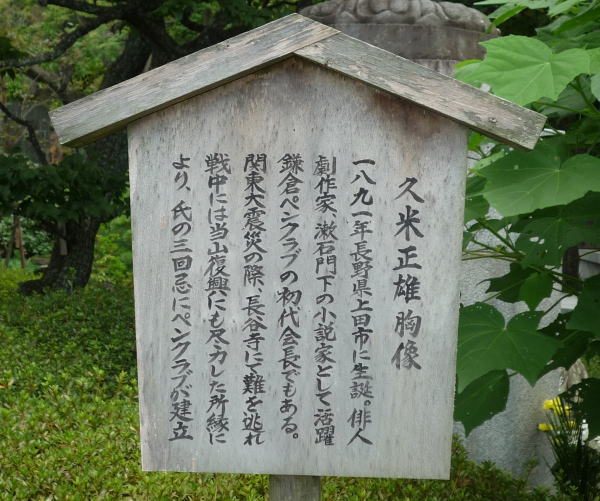 久米正雄胸像
一八九一年長野県上田市に生誕。俳人
劇作家、漱石門下の小説家として活躍
鎌倉ペンクラブの初代会長でもある。
関東大震災の際、長谷寺にて難を逃れ
戦中には当山復興にも尽力した所縁に
より、氏の三回忌にペンクラブが建立